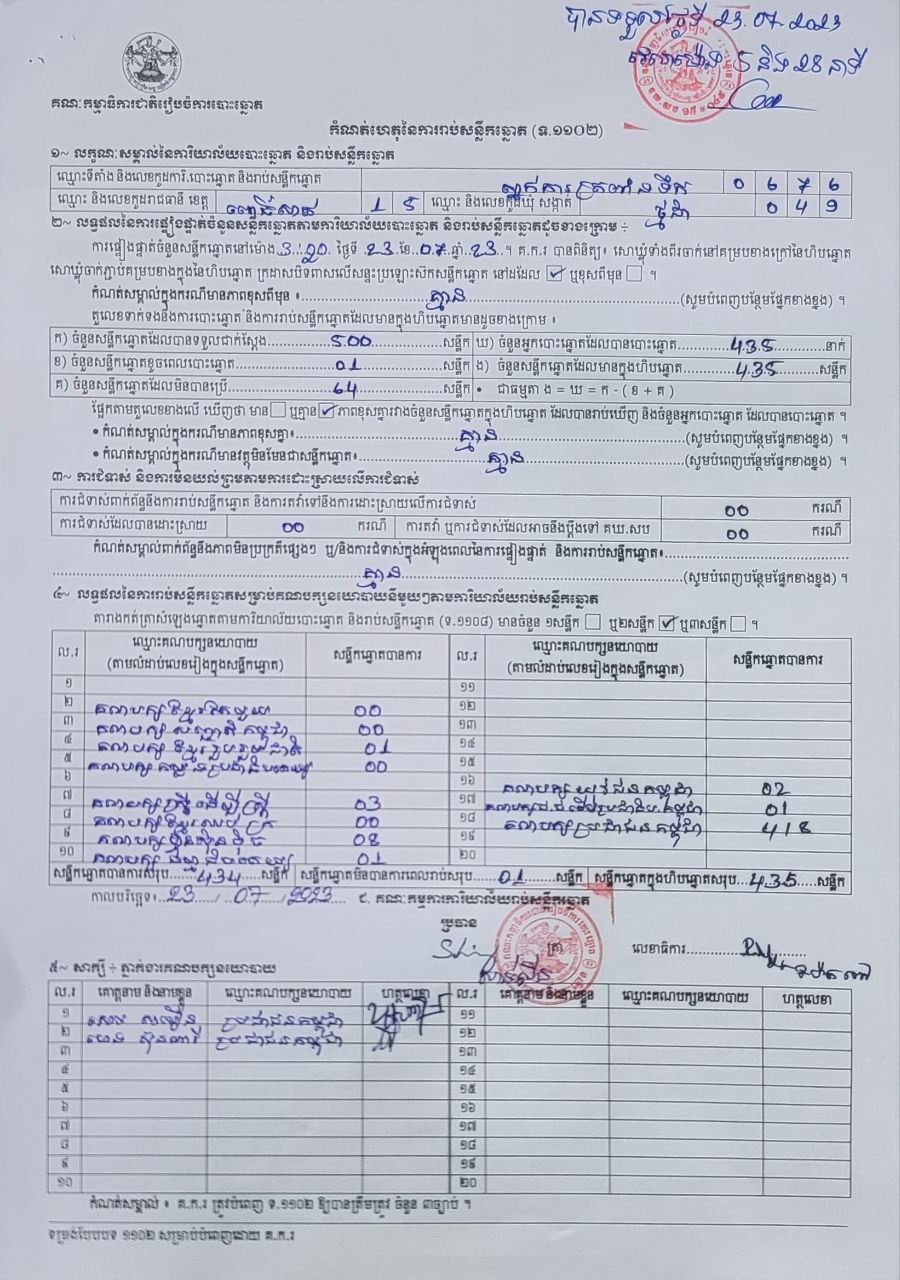 បានទទួលថ្ងៃទី 23.07.2023
វេលាម៉ោង 5 និង 28 នាទី
គណៈកម្មាធិការជាតិរៀបចំការបោះឆ្នោត
កំណត់ហេតុនៃការរាប់សន្លឹកឆ្នោត (ទ.១១០២)
១~ លក្ខណៈសម្គាល់នៃការិយាល័យបោះឆ្នោត និងរាប់សន្លឹកឆ្នោត
ឈ្មោះទីតាំង និងលេខកូដការិ.បោះឆ្នោត និងរាប់សន្លឹកឆ្នោត 0 6 7 6
ឈ្មោះ និងលេខកូដរាជធានី ខេត្ត ពោធិ៍សាត់ 1 5 ឈ្មោះ និងលេខកូដឃុំ សង្កាត់ 0 4 9
២~ លទ្ធផលនៃការផ្ទៀងផ្ទាត់ចំនួនសន្លឹកឆ្នោតតាមការិយាល័យបោះឆ្នោត និងរាប់សន្លឹកឆ្នោតដូចខាងក្រោម ÷
ការផ្ទៀងផ្ទាត់ចំនួនសន្លឹកឆ្នោតនៅម៉ោង 3:00 ថ្ងៃទី 23 ខែ 07 ឆ្នាំ 23 ។ គ.ក.រ បានពិនិត្យ៖ សោឃ្លុំទាំងពីរចាក់នៅគម្របខាងក្រៅនៃហិបឆ្នោត
សោឃ្លុំចាក់ភ្ជាប់គម្របខាងក្នុងនៃហិបឆ្នោត ក្រដាសបិទពាសលើសន្ទះប្រឡោះសឹកសន្លឹកឆ្នោត នៅដដែល ☑ ឬខុសពីមុន ☐ ។
កំណត់សម្គាល់ក្នុងករណីមានភាពខុសពីមុន ៖ គ្មាន (សូមបំពេញបន្ថែមផ្នែកខាងខ្នង) ។
តួលេខទាក់ទងនឹងការបោះឆ្នោត និងការរាប់សន្លឹកឆ្នោតដែលមានក្នុងហិបឆ្នោតមានដូចខាងក្រោម ៖
ក) ចំនួនសន្លឹកឆ្នោតដែលបានទទួលជាក់ស្តែង 500 សន្លឹក ឃ) ចំនួនអ្នកបោះឆ្នោតដែលបានបោះឆ្នោត 435 នាក់
ខ) ចំនួនសន្លឹកឆ្នោតខូចពេលបោះឆ្នោត 01 សន្លឹក ង) ចំនួនសន្លឹកឆ្នោតដែលមានក្នុងហិបឆ្នោត 435 សន្លឹក
គ) ចំនួនសន្លឹកឆ្នោតដែលមិនបានប្រើ 64 សន្លឹក • ជាធម្មតា ង = ឃ = ក - ( ខ + គ )
ផ្អែកតាមតួលេខខាងលើ ឃើញថា មាន ☐ ឬគ្មាន ☑ ភាពខុសគ្នារវាងចំនួនសន្លឹកឆ្នោតក្នុងហិបឆ្នោត ដែលបានរាប់ឃើញ និងចំនួនអ្នកបោះឆ្នោត ដែលបានបោះឆ្នោត ។
• កំណត់សម្គាល់ក្នុងករណីមានភាពខុសគ្នា៖ គ្មាន (សូមបំពេញបន្ថែមផ្នែកខាងខ្នង) ។
• កំណត់សម្គាល់ក្នុងករណីមានវត្ថុមិនមែនជាសន្លឹកឆ្នោត៖ គ្មាន (សូមបំពេញបន្ថែមផ្នែកខាងខ្នង) ។
៣~ ការជំទាស់ និងការមិនយល់ព្រមតាមការដោះស្រាយលើការជំទាស់
ការជំទាស់ពាក់ព័ន្ធនឹងការរាប់សន្លឹកឆ្នោត និងការតវ៉ាទៅនឹងការដោះស្រាយលើការជំទាស់ 00 ករណី
ការជំទាស់ដែលបានដោះស្រាយ 00 ករណី ការតវ៉ា ឬការជំទាស់ដែលអាចនឹងប្តឹងទៅ គឃ.សប 00 ករណី
កំណត់សម្គាល់ពាក់ព័ន្ធនឹងភាពមិនប្រក្រតីផ្សេងៗ ឬ/និងការជំទាស់ក្នុងអំឡុងពេលនៃការផ្ទៀងផ្ទាត់ និងការរាប់សន្លឹកឆ្នោត៖
គ្មាន (សូមបំពេញបន្ថែមផ្នែកខាងខ្នង) ។
៤~ លទ្ធផលនៃការរាប់សន្លឹកឆ្នោតសម្រាប់គណបក្សនយោបាយនីមួយៗតាមការិយាល័យរាប់សន្លឹកឆ្នោត
តារាងកត់ត្រាសំឡេងឆ្នោតតាមការិយាល័យបោះឆ្នោត និងរាប់សន្លឹកឆ្នោត (ទ.១១០៨) មានចំនួន ១សន្លឹក ☐ ឬ២សន្លឹក ☑ ឬ៣សន្លឹក ☐ ។
ល.រ ឈ្មោះគណបក្សនយោបាយ (តាមលំដាប់លេខរៀងក្នុងសន្លឹកឆ្នោត) សន្លឹកឆ្នោតបានការ ល.រ ឈ្មោះគណបក្សនយោបាយ (តាមលំដាប់លេខរៀងក្នុងសន្លឹកឆ្នោត) សន្លឹកឆ្នោតបានការ
១ ១១
២ គណបក្សខ្មែរតែមួយ 00 ១២
៣ គណបក្ស សញ្ជាតិកម្ពុជា 00 ១៣
៤ គណបក្សខ្មែររួបរួមជាតិ 01 ១៤
៥ 00 ១៥
៦ ១៦ គណបក្សយុវជនកម្ពុជា 02
៧ គណបក្សស្ត្រីដើម្បីស្ត្រី 03 ១៧ 01
៨ 00 ១៨ គណបក្សប្រជាជនកម្ពុជា 418
៩ គណបក្សហ្វ៊ុនស៊ិនប៉ិច 08 ១៩
១០ គណបក្សធម្មាធិបតេយ្យ 01 ២០
សន្លឹកឆ្នោតបានការសរុប 434 សន្លឹក សន្លឹកឆ្នោតមិនបានការពេលរាប់សរុប 01 សន្លឹក សន្លឹកឆ្នោតក្នុងហិបឆ្នោតសរុប 435 សន្លឹក
កាលបរិច្ឆេទ៖ 23 / 07 / 2023 ជ. គណៈកម្មការការិយាល័យរាប់សន្លឹកឆ្នោត
ប្រធាន
ត្រា លេខាធិការ
៥~ សាក្សី ÷ ភ្នាក់ងារគណបក្សនយោបាយ
ល.រ គោត្តនាម និងនាមខ្លួន ឈ្មោះគណបក្សនយោបាយ ហត្ថលេខា ល.រ គោត្តនាម និងនាមខ្លួន ឈ្មោះគណបក្សនយោបាយ ហត្ថលេខា
១ ប្រជាជនកម្ពុជា ១១
២ ប្រជាជនកម្ពុជា ១២
៣ ១៣
៤ ១៤
៥ ១៥
៦ ១៦
៧ ១៧
៨ ១៨
៩ ១៩
១០ ២០
កំណត់សម្គាល់ ៖ គ.ក.រ ត្រូវបំពេញ ទ.១១០២ ឱ្យបានត្រឹមត្រូវ ចំនួន ៣ច្បាប់ ។
ទម្រង់បែបបទ ១១០២ សម្រាប់បំពេញដោយ គ.ក.រ